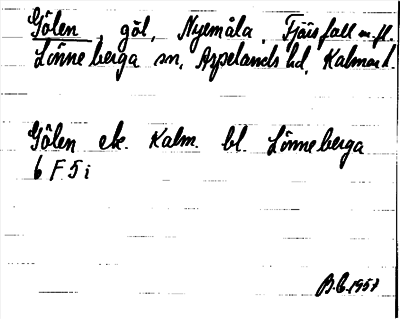 Gölen, göl, Nyemåla, Fjärsfall m.fl.
Lönneberga sn, Aspelands hd, Kalmar l.
Gölen ek. Kalm. bl. Lönneberga
6 F 5 i
B.C. 1957